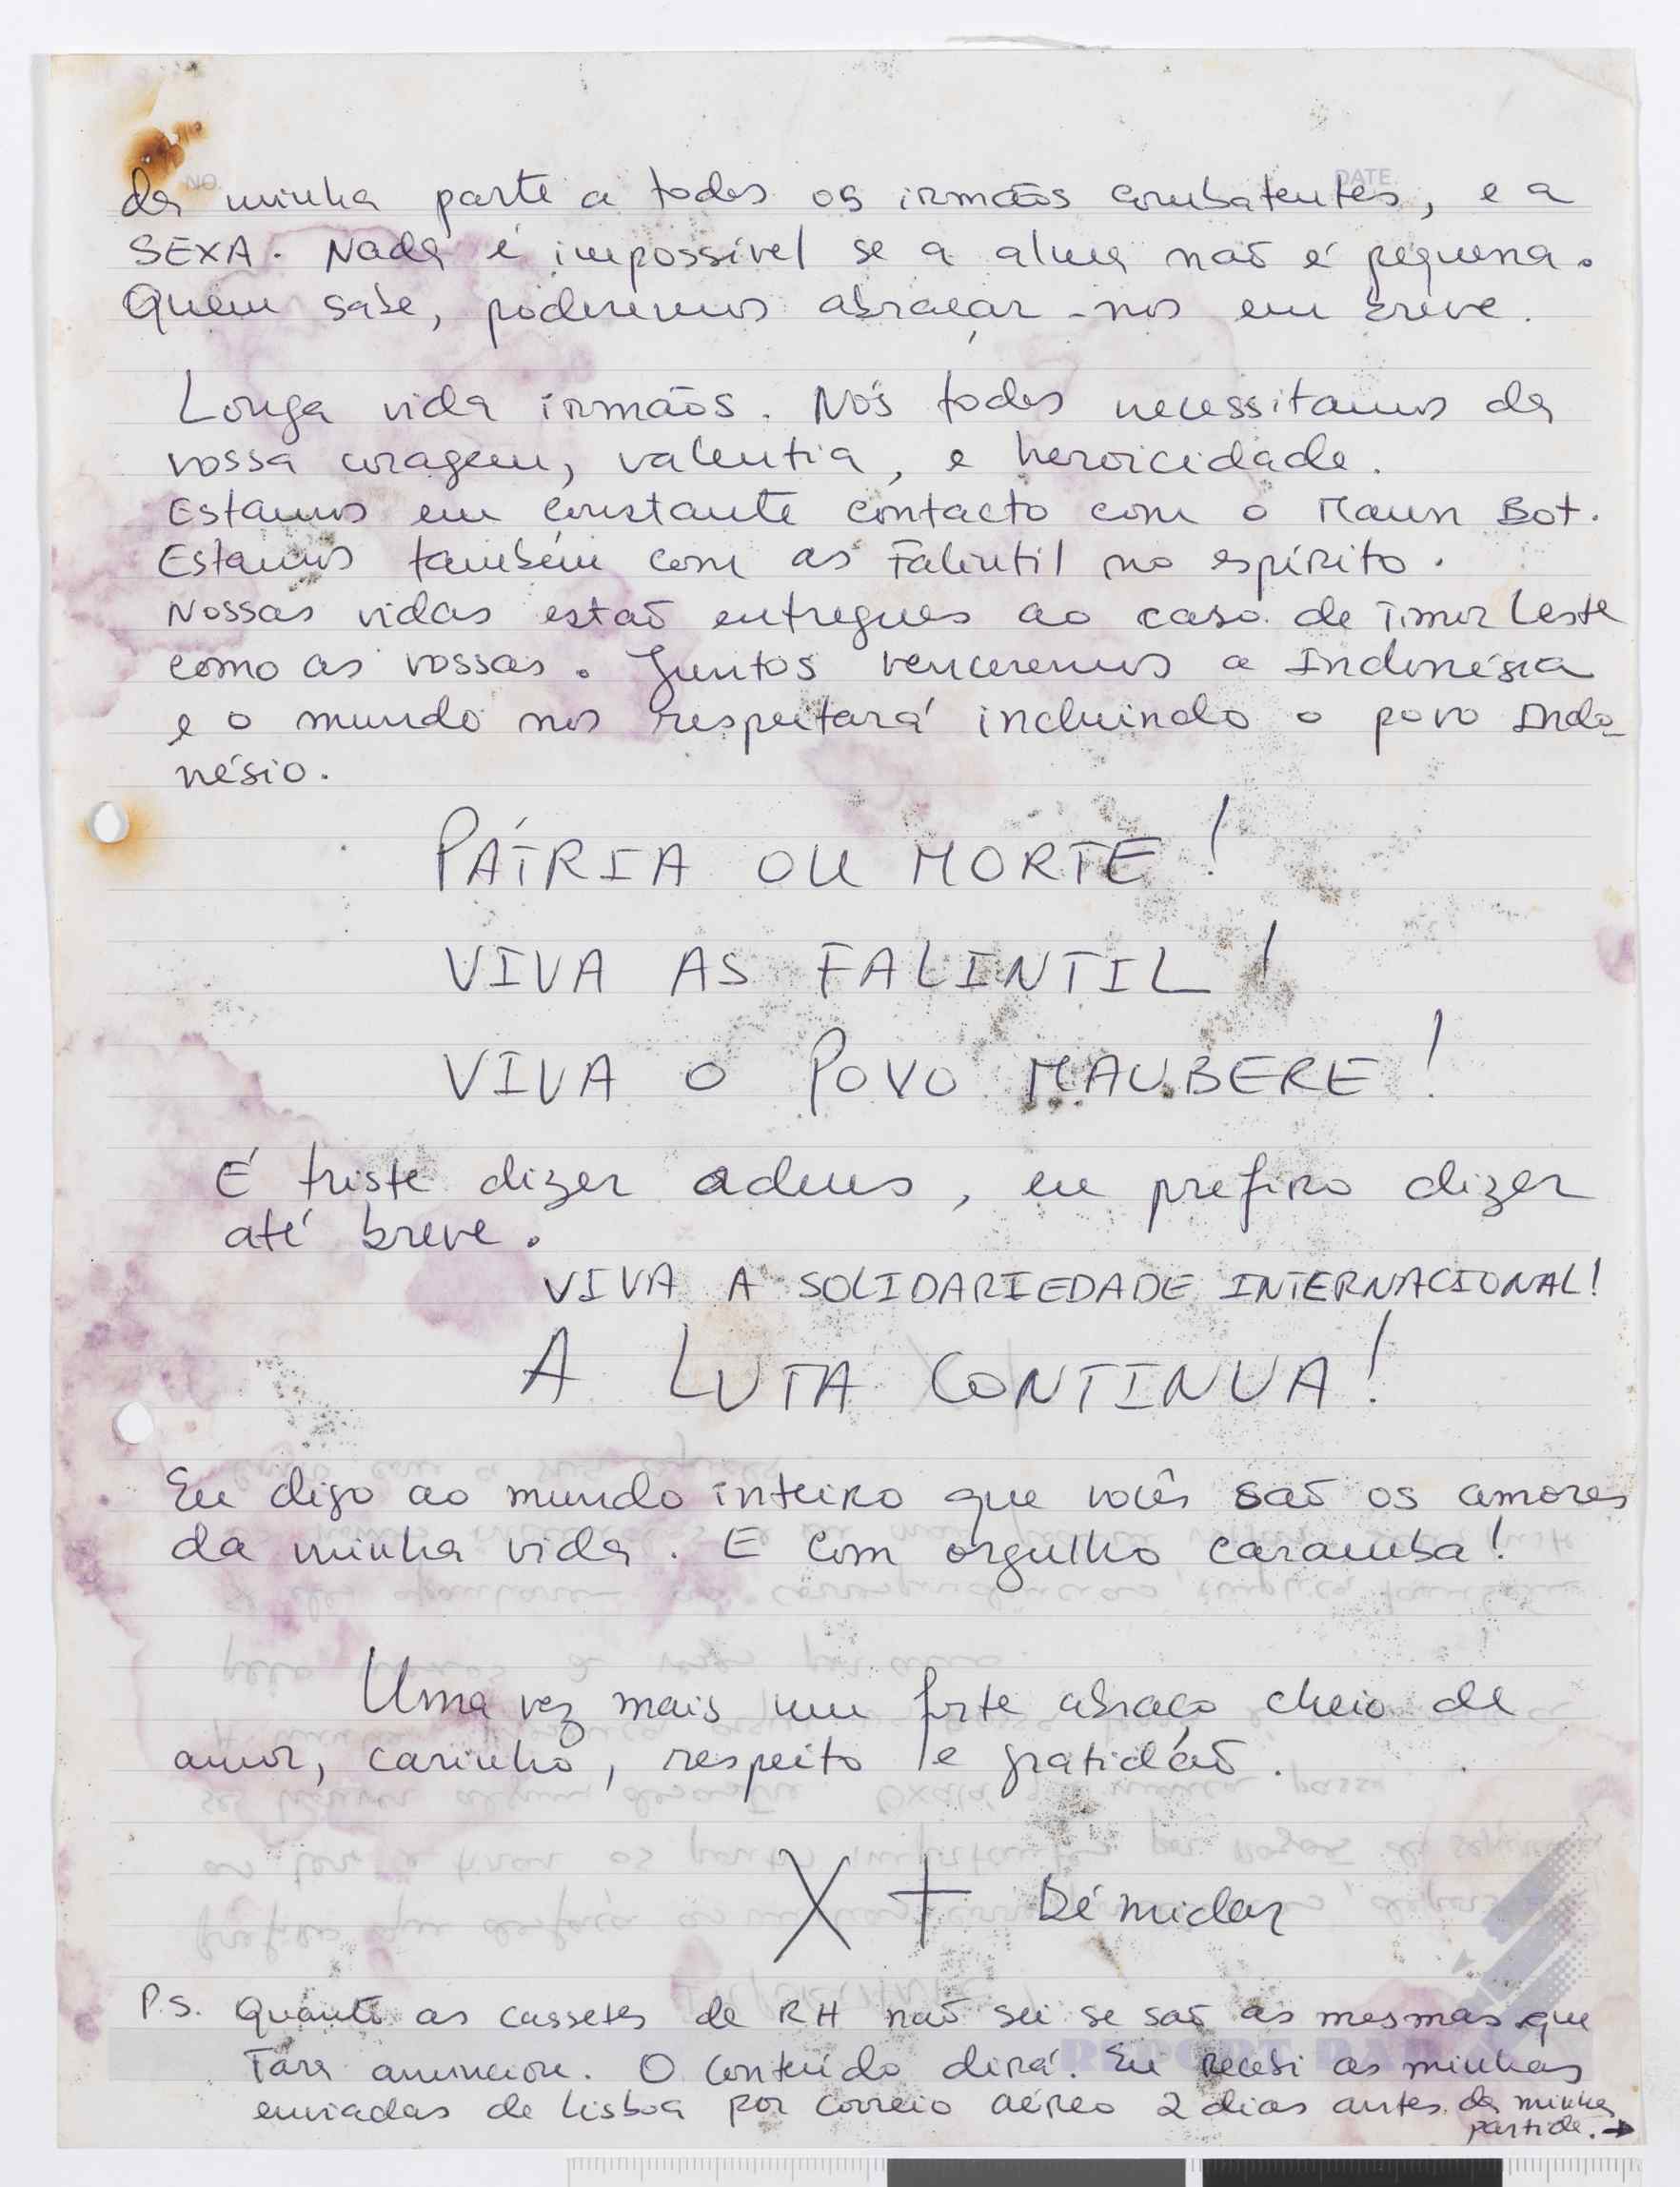 NO. DATE
da minha parte a todos os irmãos combatentes, e a
SEXA. Nada é impossível se a alma não é pequena.
Quem sabe, poderemos abraçar-nos em breve.
Longa vida irmãos. Nós todos necessitamos da
vossa coragem, valentia, e heroicidade.
Estamos em constante contacto com o Maun Bot.
Estamos também com as Falintil no espírito.
Nossas vidas estão entregues ao caso de Timor Leste
como as vossas. Juntos venceremos a Indonésia
e o mundo nos respeitará incluindo o povo Indo-
nésio.
PÁTRIA OU MORTE!
VIVA AS FALINTIL!
VIVA O POVO MAUBERE!
É triste dizer adeus, eu prefiro dizer
até breve.
VIVA A SOLIDARIEDADE INTERNACIONAL!
A LUTA CONTINUA!
Eu digo ao mundo inteiro que vocês são os amores
da minha vida. E com orgulho caramba!
Uma vez mais um forte abraço cheio de
amor, carinho, respeito e gratidão.
X + Bé midar
P.S. Quanto as cassetes de RH não sei se são as mesmas que
Tara anunciou. O conteúdo dirá. Eu recebi as minhas
enviadas de Lisboa por correio aéreo 2 dias antes da minha
partida. →
REPORT PAD